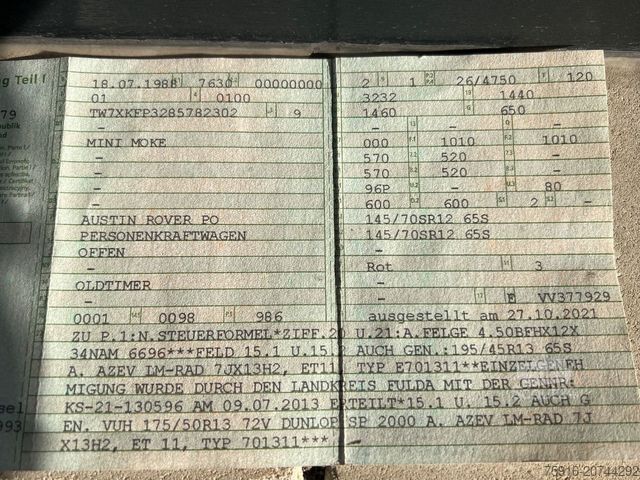 ng Teil I
18.07.1988 7630 00000000
01 0100
TW7XKFP3285782302 9
–
MINI MOKE
–
–
–
–
AUSTIN ROVER PO
PERSONENKRAFTWAGEN
OFFEN
–
OLDTIMER
–
0001 0098 986
2 1 26/4750 120
3232 1440
1460 650
– – –
000 1010 1010
570 520 –
570 520 –
96P – 80
600 600 2 –
145/70SR12 65S
145/70SR12 65S
–
Rot 3
–
– E VV377929
ausgestellt am 27.10.2021
ZU P.1:N.STEUERFORMEL*ZIFF.20 U.21:A.FELGE 4.50BFHX12X
34NAM 6696***FELD 15.1 U.15.2 AUCH GEN.:195/45R13 65S
A. AZEV LM-RAD 7JX13H2, ET11, TYP E701311**EINZELGENEH
MIGUNG WURDE DURCH DEN LANDKREIS FULDA MIT DER GENNR:
KS-21-130596 AM 09.07.2013 ERTEILT*15.1 U. 15.2 AUCH G
EN. VUH 175/50R13 72V DUNLOP SP 2000 A. AZEV LM-RAD 7J
X13H2, ET 11, TYP 701311***
79
publik
993
75916-20744292